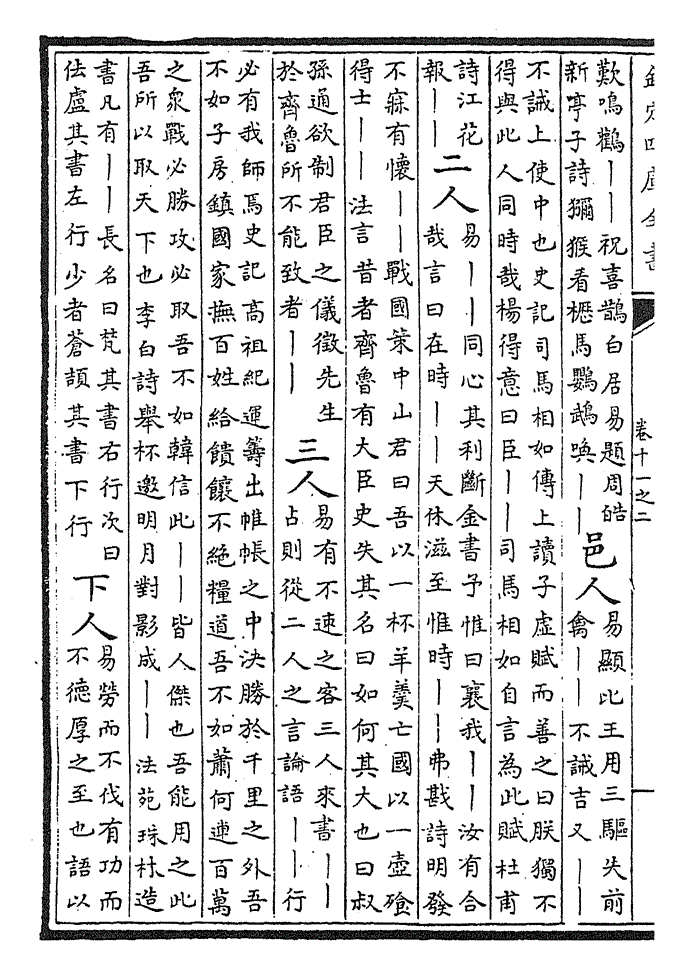 欽定四庫全書
卷十一之二
歎鳴鸛｜｜祝喜鵲白居易題周皓
新亭子詩獼猴看櫪馬鸚鵡喚｜｜
邑人
易顯比王用三驅失前
禽｜｜不誡吉又｜｜
不誡上使中也史記司馬相如傳上讀子虛賦而善之曰朕獨不
得與此人同時哉楊得意曰臣｜｜司馬相如自言為此賦杜甫
詩江花
報｜｜
二人
易｜｜同心其利斷金書予惟曰襄我｜｜汝有合
哉言曰在時｜｜天休滋至惟時｜｜弗戡詩明發
不寐有懷｜｜戰國策中山君曰吾以一杯羊羹亡國以一壺飱
得士｜｜法言昔者齊魯有大臣史失其名曰如何其大也曰叔
孫通欲制君臣之儀徵先生
於齊魯所不能致者｜｜
三人
易有不速之客三人來書｜｜
占則從二人之言論語｜｜行
必有我師焉史記高祖紀運籌出帷帳之中決勝於千里之外吾
不如子房鎮國家撫百姓給饋饟不絕糧道吾不如蕭何連百萬
之眾戰必勝攻必取吾不如韓信此｜｜皆人傑也吾能用之此
吾所以取天下也李白詩舉杯邀明月對影成｜｜法苑珠林造
書凡有｜｜長名曰梵其書右行次曰
佉盧其書左行少者蒼頡其書下行
下人
易勞而不伐有功而
不德厚之至也語以